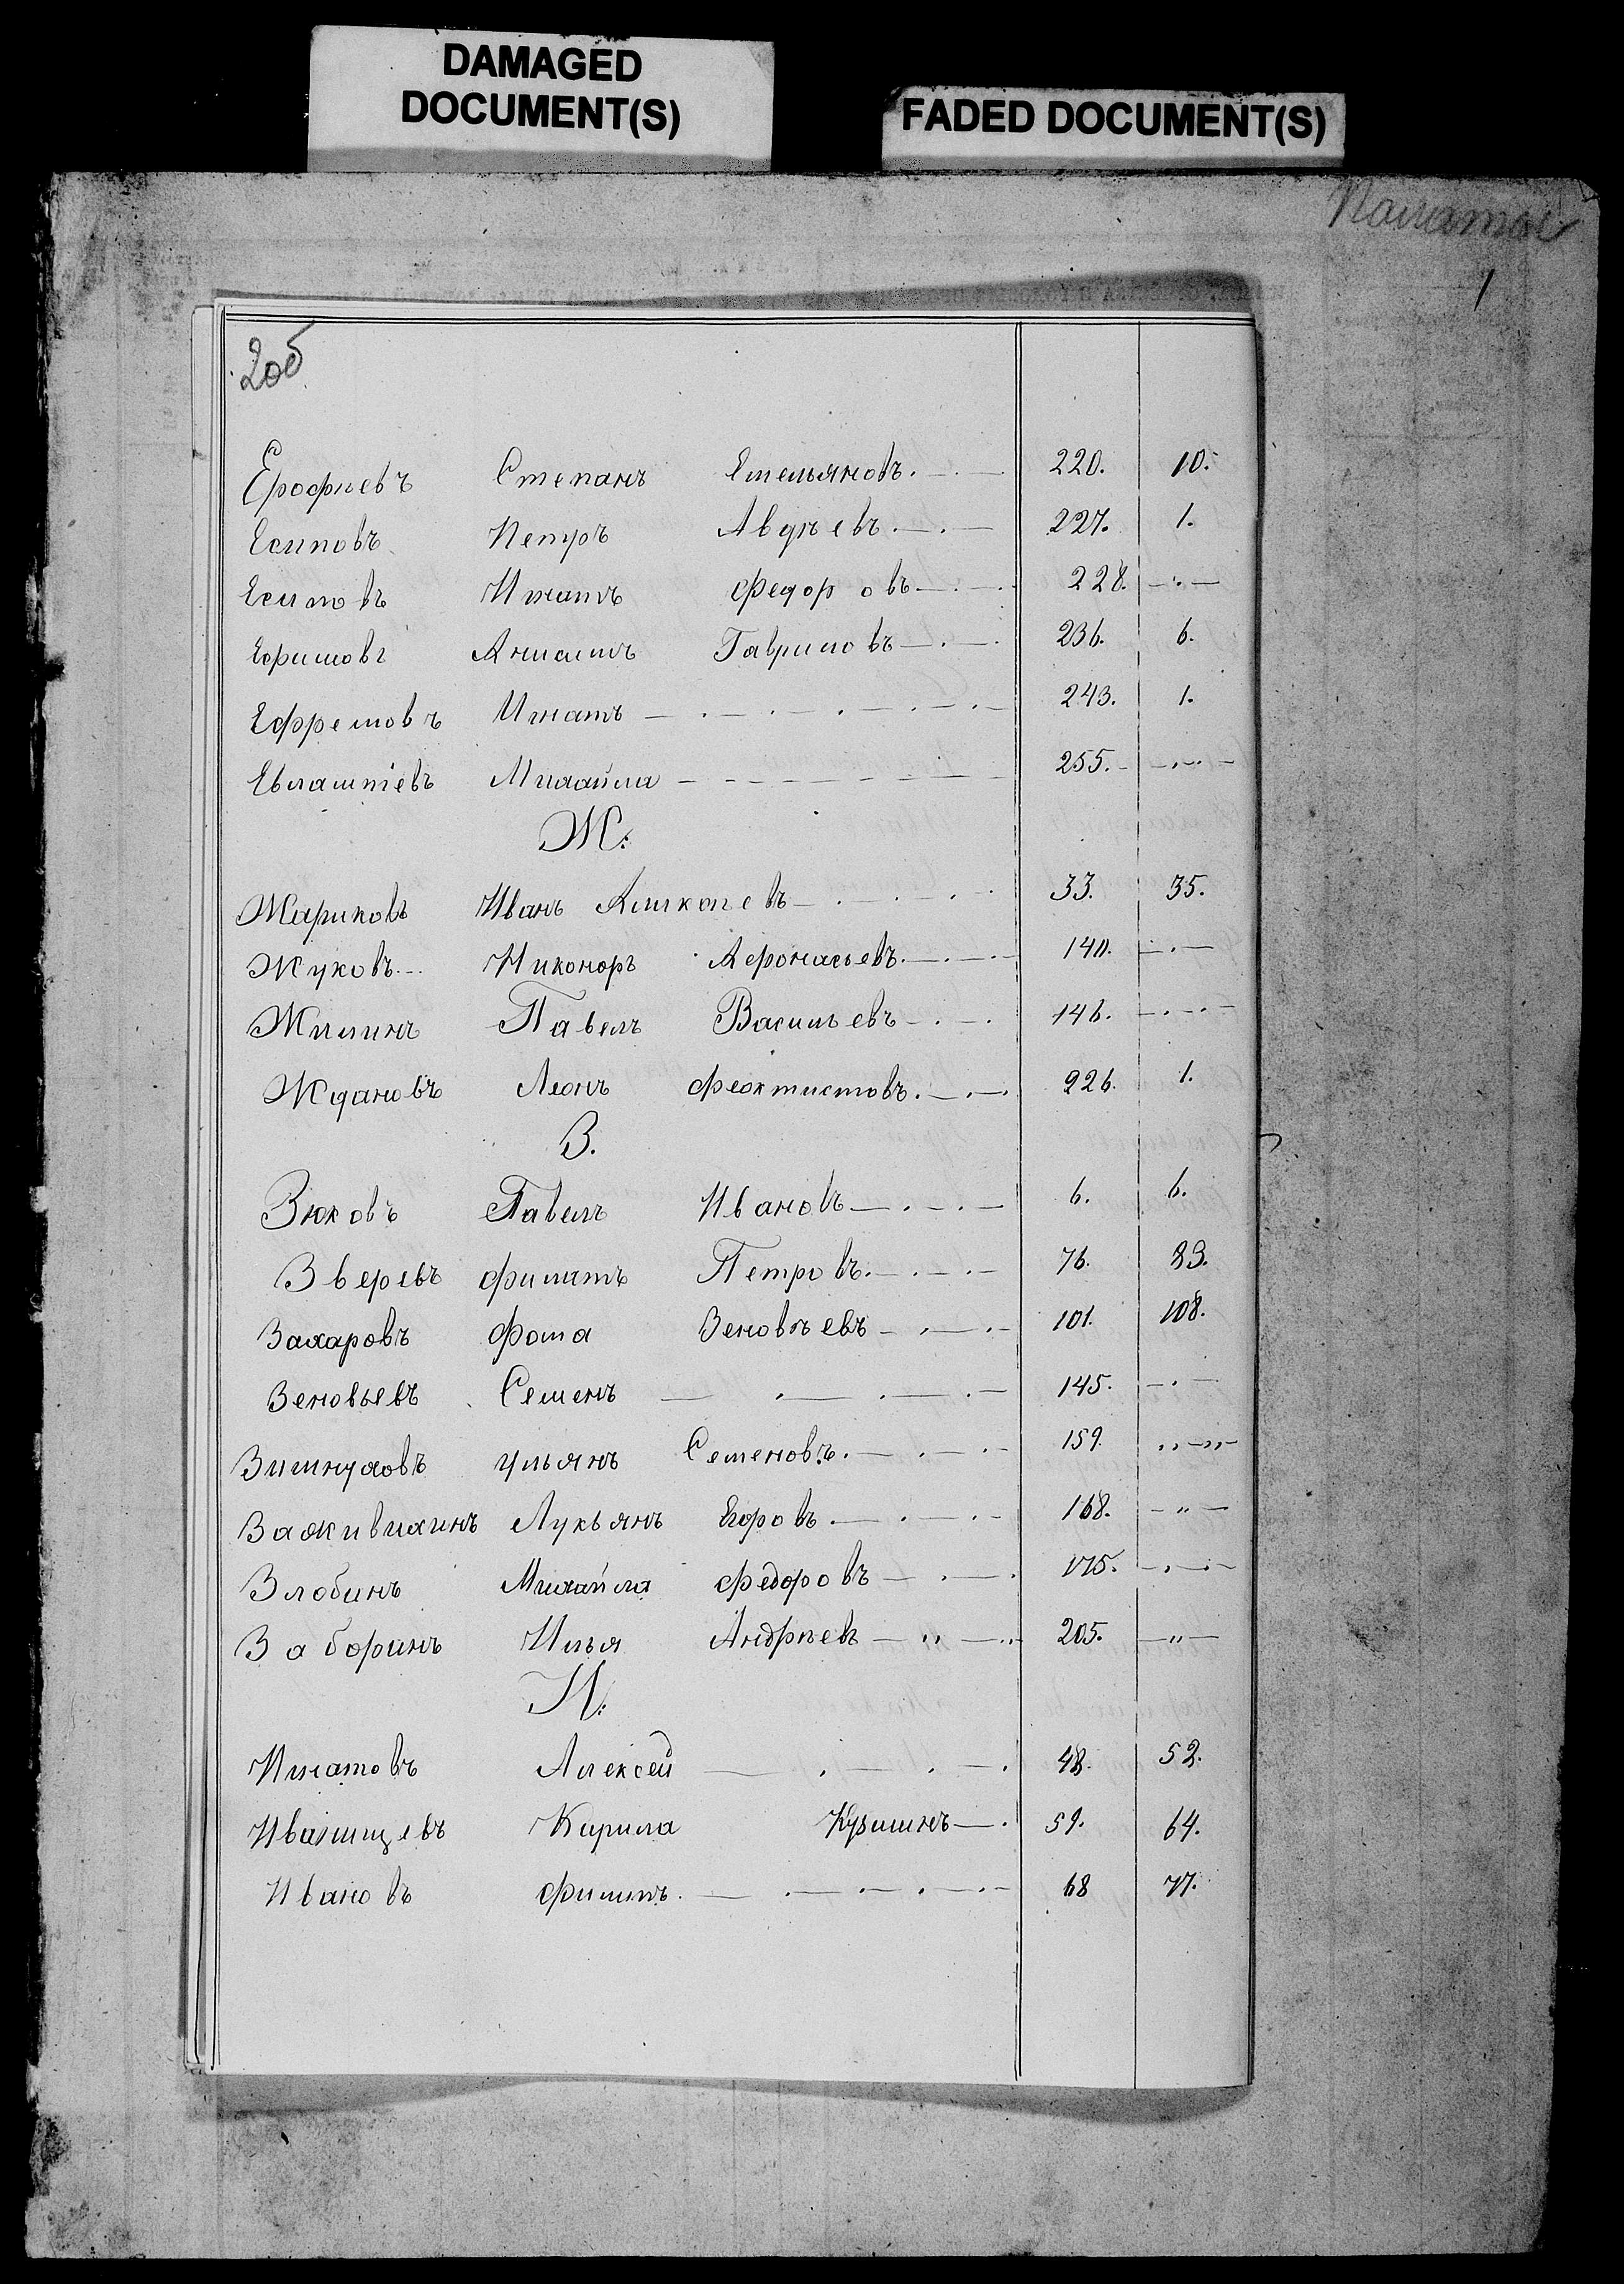 DAMAGED
DOCUMENT(S)
FADED DOCUMENT(S)
1
20б
Ерофѣевъ Степанъ Емельяновъ. — . — 220. 10.
Есиповъ Петръ Авдѣевъ. — . — 227. 1.
Есиповъ Игнатъ Федоровъ — . — . 228. — . —
Ефимовъ Гавриловъ — . — . 236. 6.
Ефремовъ Игнатъ — . — . — . — . — . — 243. 1.
Евлампіевъ Михайла — — — — — — — 255. — . — . —
Ж.
Жариковъ Иванъ Алексѣевъ — . — . — . 33. 35.
Жуковъ. — . Никоноръ Афонасьевъ. — . — . 140. — . —
Жилинъ Павелъ Васильевъ — . — . 146. — . — . —
Ждановъ Леонъ Феоктистовъ. — . — 226. 1.
З.
Зюковъ Павелъ Ивановъ — . — . — 6. 6.
Зверевъ Филатъ Петровъ. — . — . — 76. 83.
Захаровъ Фома Зеновѣевъ — . — . — 101. 108.
Зеновьевъ Семенъ — . — . — . — 145. — . —
Зимнуховъ Ульянъ Семеновъ. — . — . — 159. „ — „ —
Заживихинъ Лукьянъ Егоровъ. — . — . — 168. — „ —
Злобинъ Михайла Федоровъ — . — . 175. — . — . —
Заборинъ Илья Андрѣевъ — „ — „ 205. — „ —
И.
Игнатовъ Алексей — . — . — . 48. 52.
Иванищевъ Карила Кузминъ — . 59. 64.
Ивановъ — . — . — . — . — 68 77.